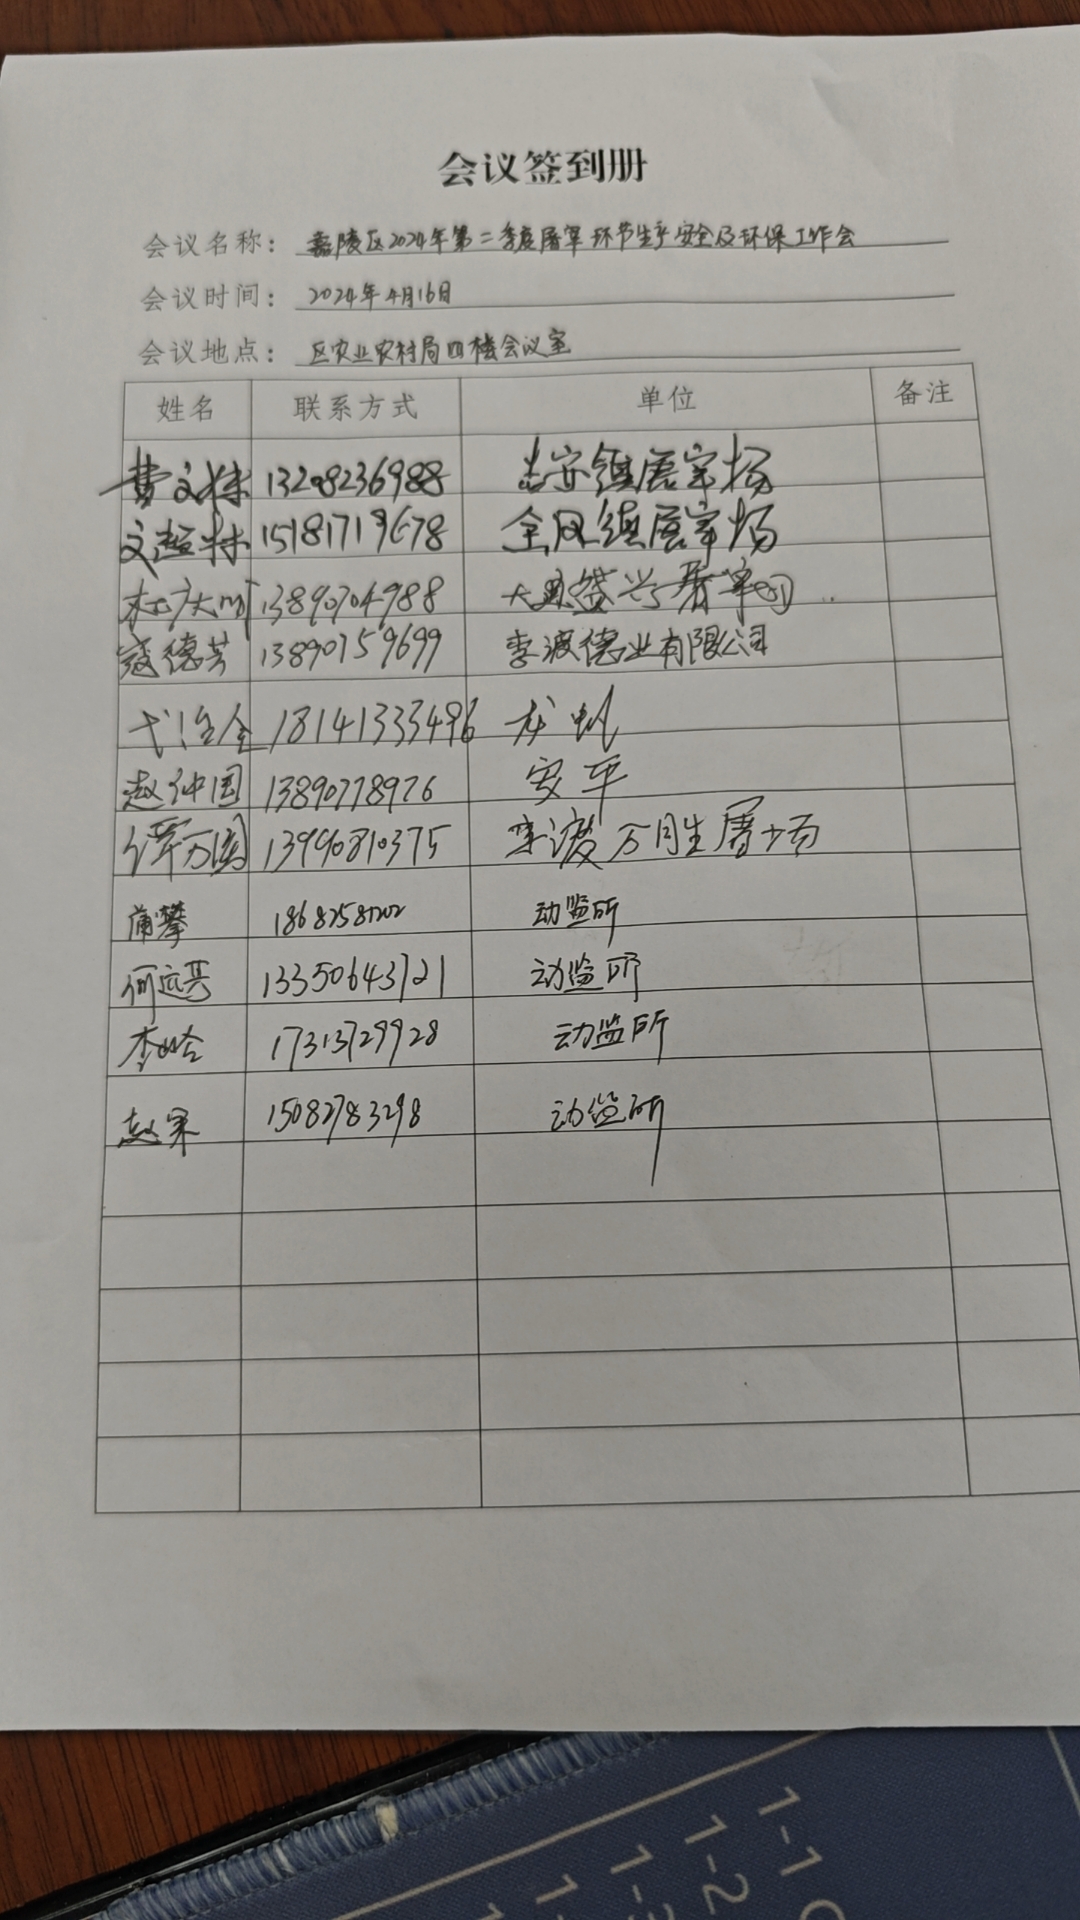 会议签到册
会议名称： 嘉陵区2024年第二季度屠宰环节生产安全及环保工作会
会议时间： 2024年4月16日
会议地点： 区农业农村局四楼会议室
姓名 联系方式 单位 备注
13208236988 镇屠宰场
15181719678 金凤镇屠宰场
13890704988
寇德芳 13890759699 李渡德业有限公司
18141333496 龙蚕
赵仲国 13890778976 安平
谭万国 13990810375 李渡万月生屠场
蒲攀 18682581202 动监所
何远其 13350643721 动监所
李晗 17313729928 动监所
赵果 15082783298 动监所
1-1
1-2
1-3
1-
1-